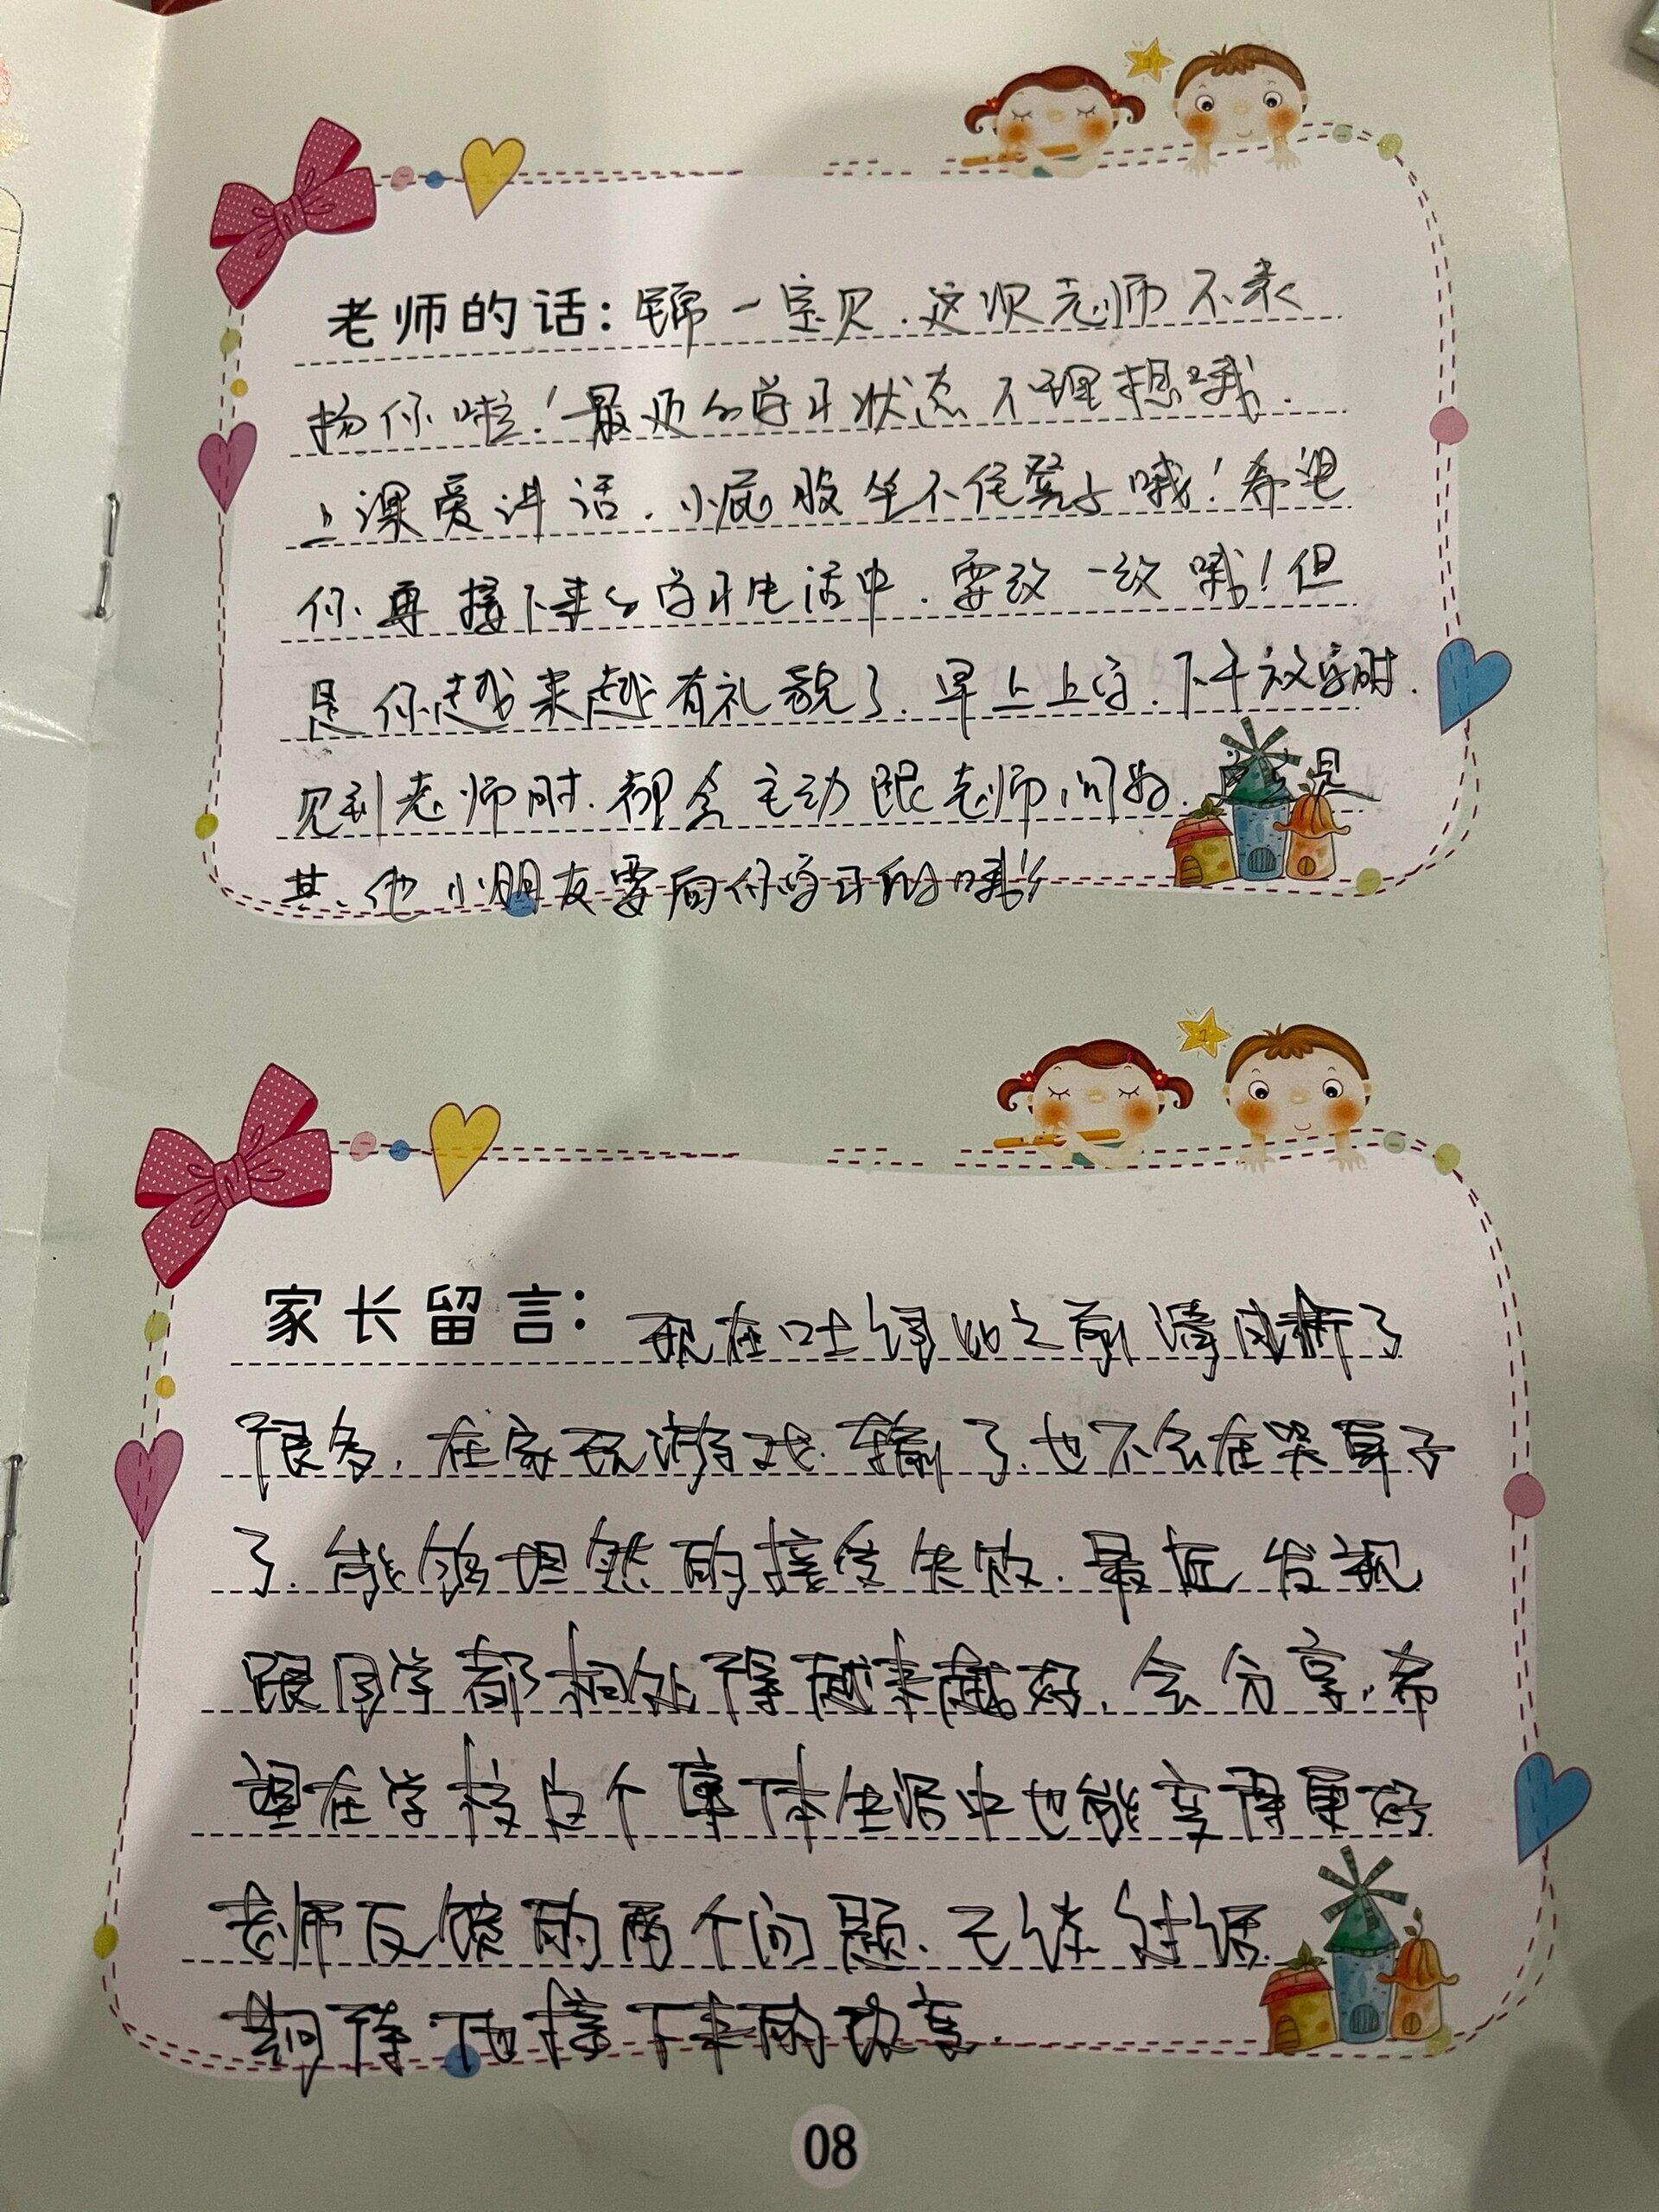 老师的话：锦一宝贝.这次老师不表
扬你啦！最近的学习状态不理想哦.
上课爱讲话.小屁股坐不住凳子哦！希望
你再接下来的学习生活中.要改一改哦！但
是你越来越有礼貌了.早上上学.下午放学时.
见到老师时.都会主动跟老师问好.这点是
其他小朋友要向你学习的哦！
家长留言：现在吐词比之前清晰了
很多.在家玩游戏.输了.也不会在哭鼻子
了.能够坦然的接受失败.最近发现
跟同学都相处得越来越好.会分享.希
望在学校这个集体生活中也能变得更好
老师反馈的两个问题.已谈过话.
期待他接下来的改变.
08